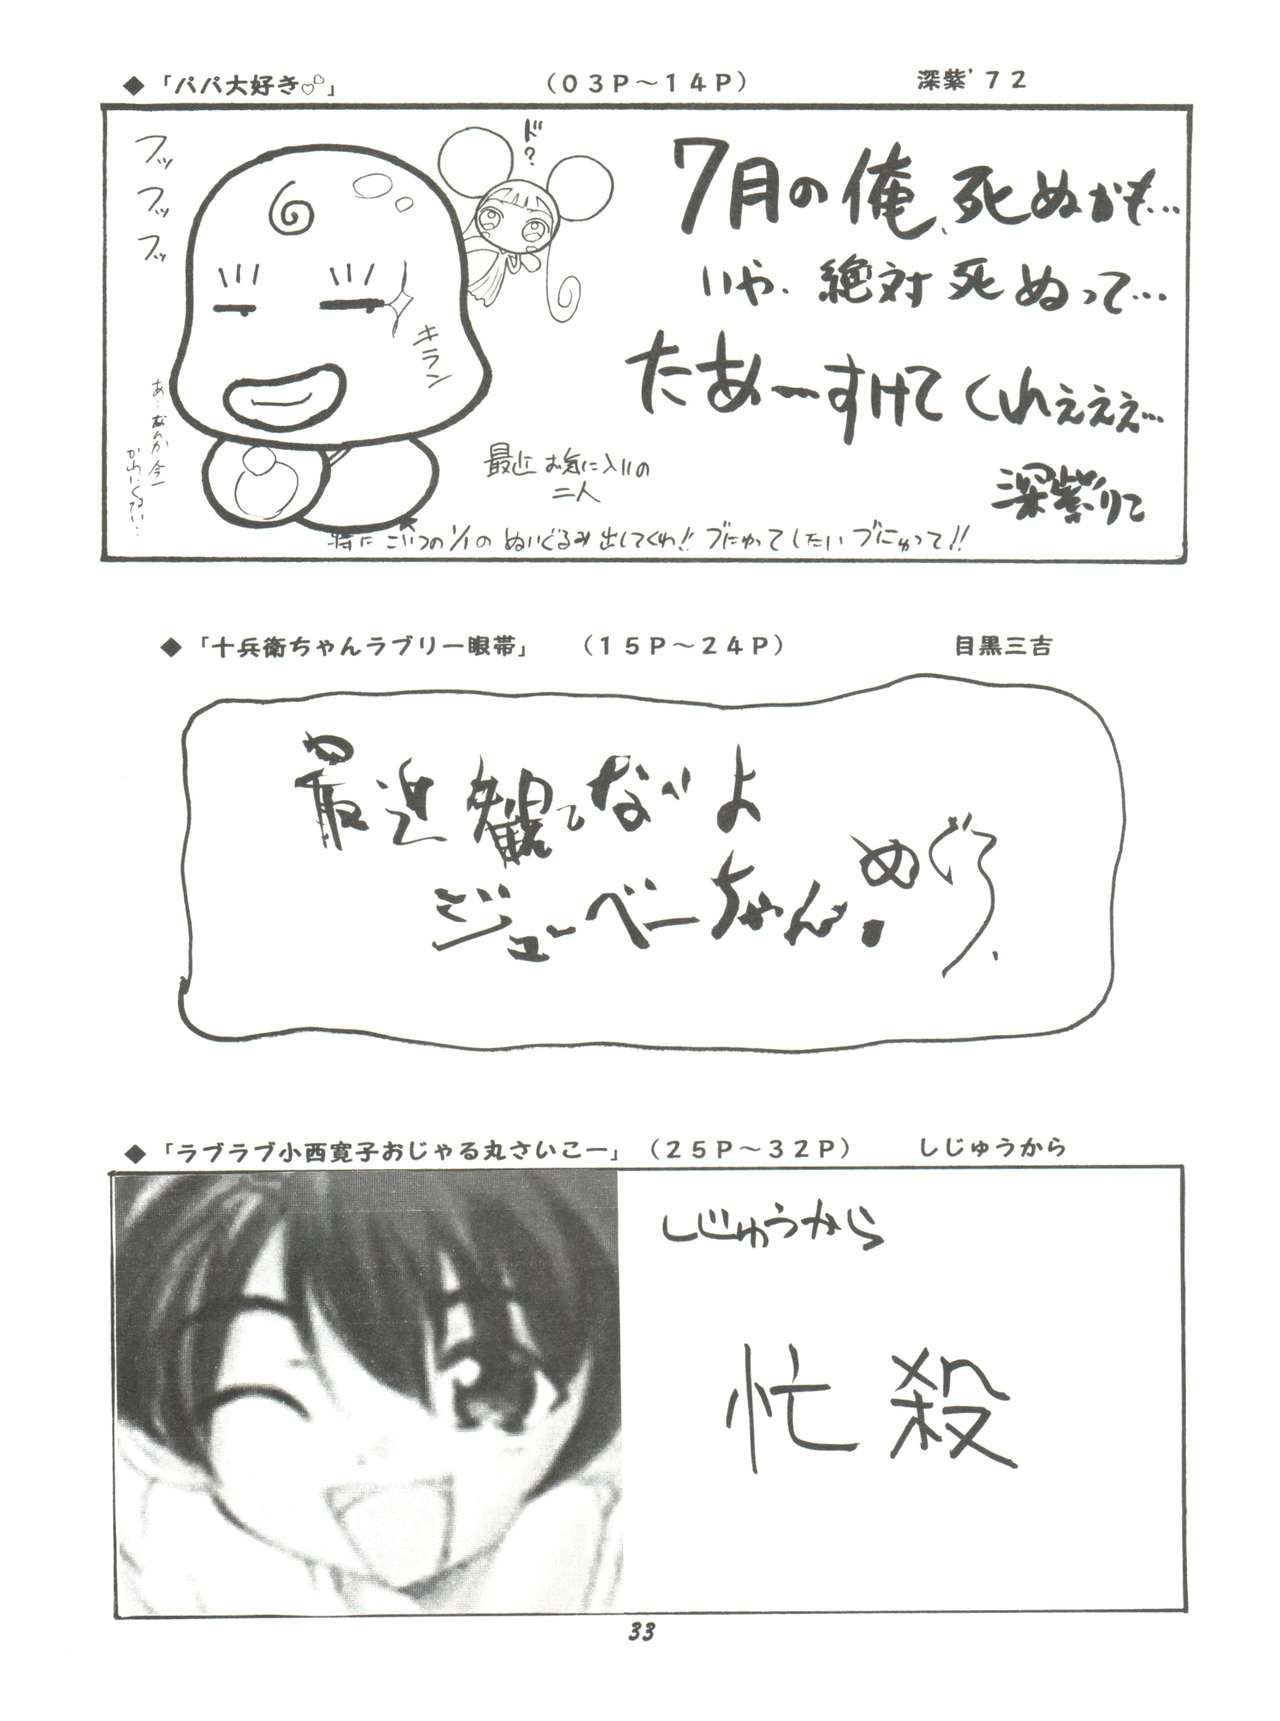 ◆「パパ大好き♡♡」 （03P～14P） 深紫'72
フッ
フッ
フッ
ド?
キラン
7月の俺、死ぬかも…
いや、絶対死ぬって…
たあーすけてくれぇぇぇ…
深紫りこ
あ…なんか今一
かわいくない…
最近お気に入りの
二人
特にこいつの1/1のぬいぐるみ出してくれ!! ブにゅってしたいブにゅって!!
◆「十兵衛ちゃんラブリー眼帯」 （15P～24P） 目黒三吉
最近観てないよ
ジューベーちゃん。
めぐろ
◆「ラブラブ小西寛子おじゃる丸さいこー」（25P～32P） しじゅうから
しじゅうから
忙殺
33